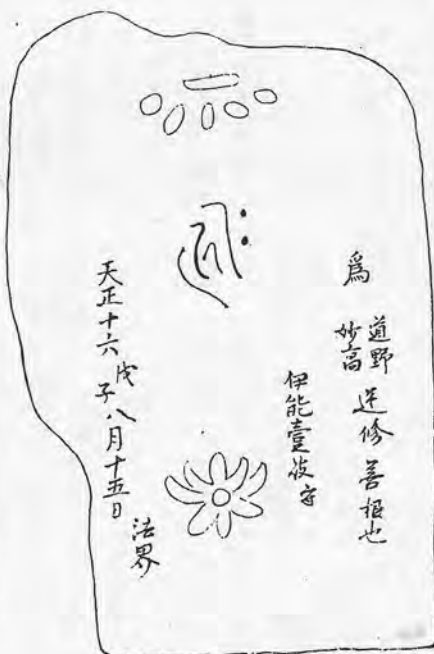 𑖮𑖿𑖨𑖱𑖾
爲 道野 妙高 逆修善根也
伊能壹岐守
天正十六戊子八月十五日
法界